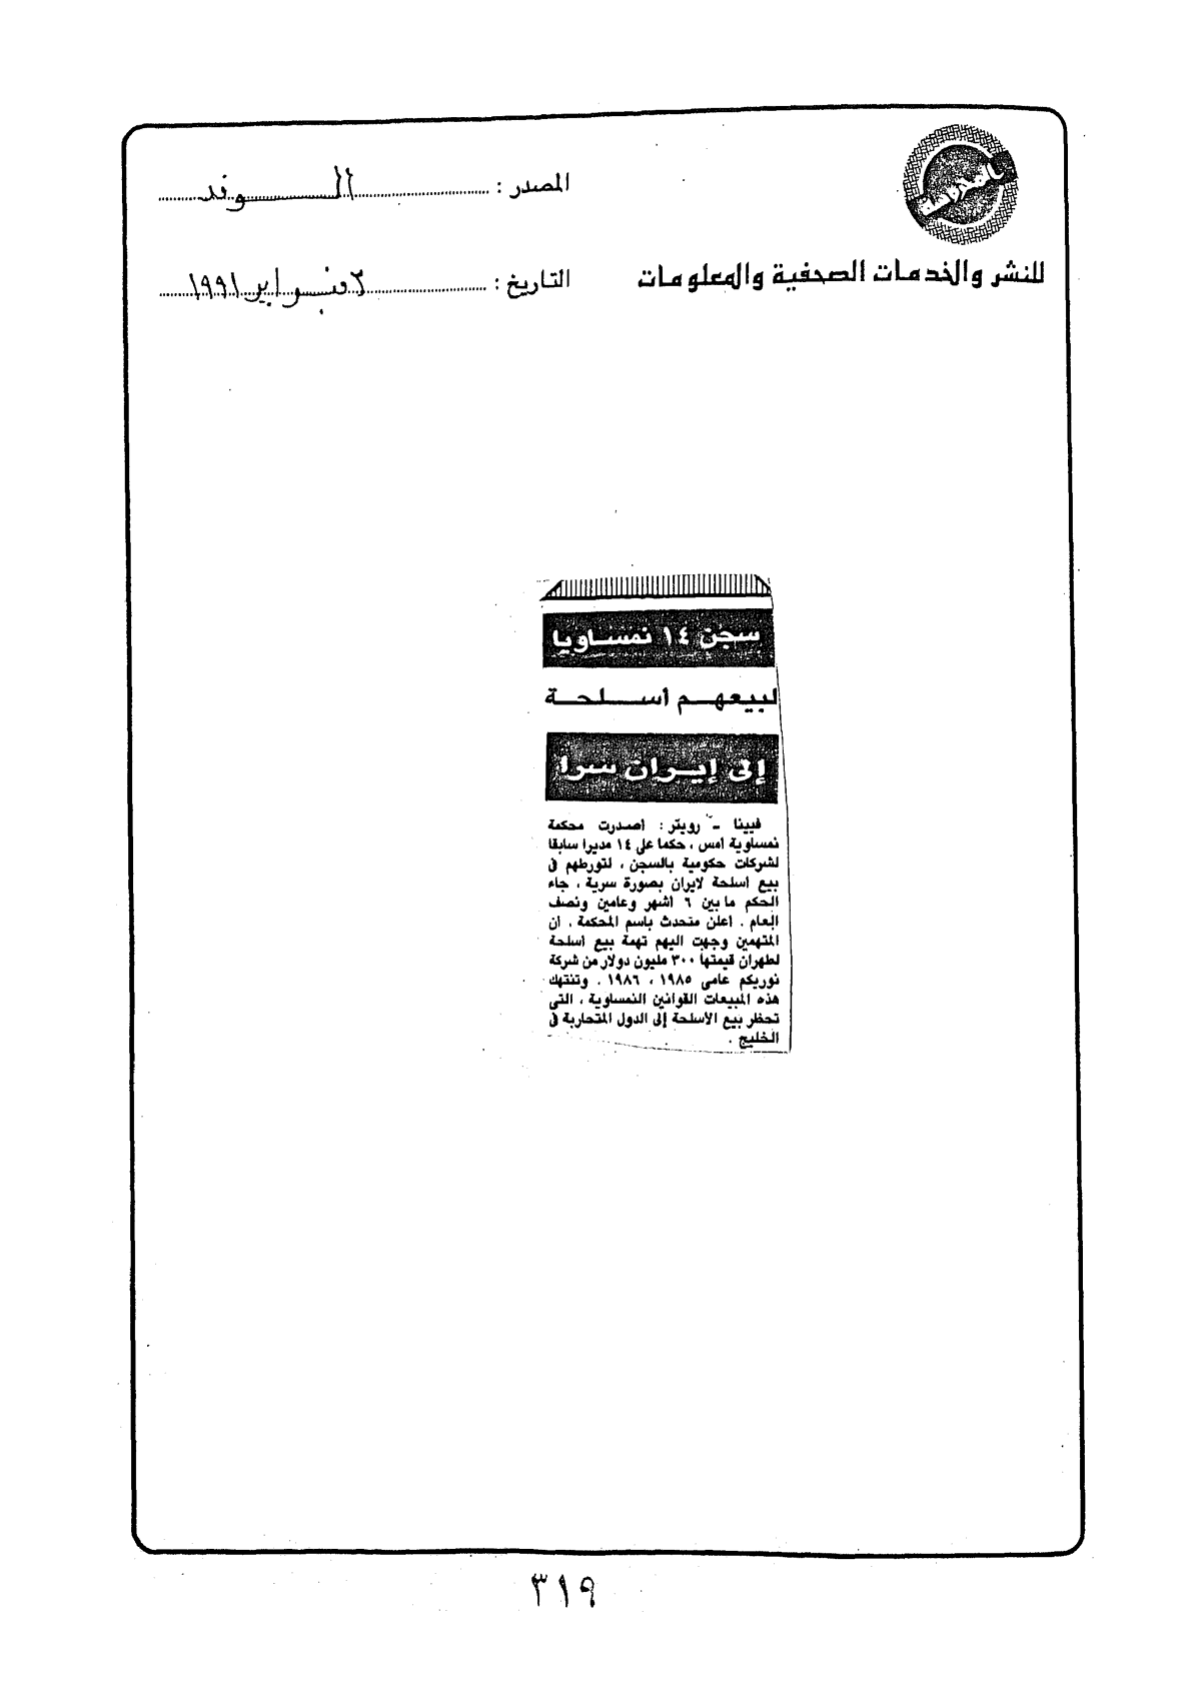 المصدر : الوفد
للنشر والخدمات الصحفية والمعلومات
التاريخ : ٢ فبراير ١٩٩١
سجن ١٤ نمساويا
لبيعهم أسلحة
إلى إيران سرا
فيينا ـ رويتر : أصدرت محكمة
نمساوية أمس ، حكما على ١٤ مديرا سابقا
لشركات حكومية بالسجن ، لتورطهم في
بيع أسلحة لايران بصورة سرية ، جاء
الحكم ما بين ٦ أشهر وعامين ونصف
العام . أعلن متحدث باسم المحكمة ، ان
المتهمين وجهت اليهم تهمة بيع أسلحة
لطهران قيمتها ٣٠٠ مليون دولار من شركة
نوريكم عامى ١٩٨٥ ، ١٩٨٦ . وتنتهك
هذه المبيعات القوانين النمساوية ، التى
تحظر بيع الأسلحة إلى الدول المتحاربة في
الخليج .
٣١٩